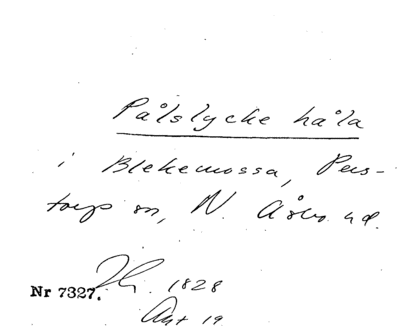 Pålslycke håla
i Blekemossa, Pers-
torp sn, N. Åsbo hd.
1828
Nr 7327.
Akt 19